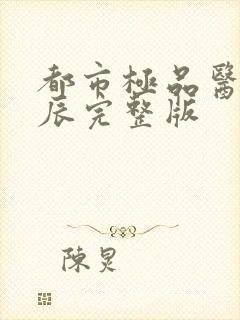 都市極品醫
辰完整版
陳炅